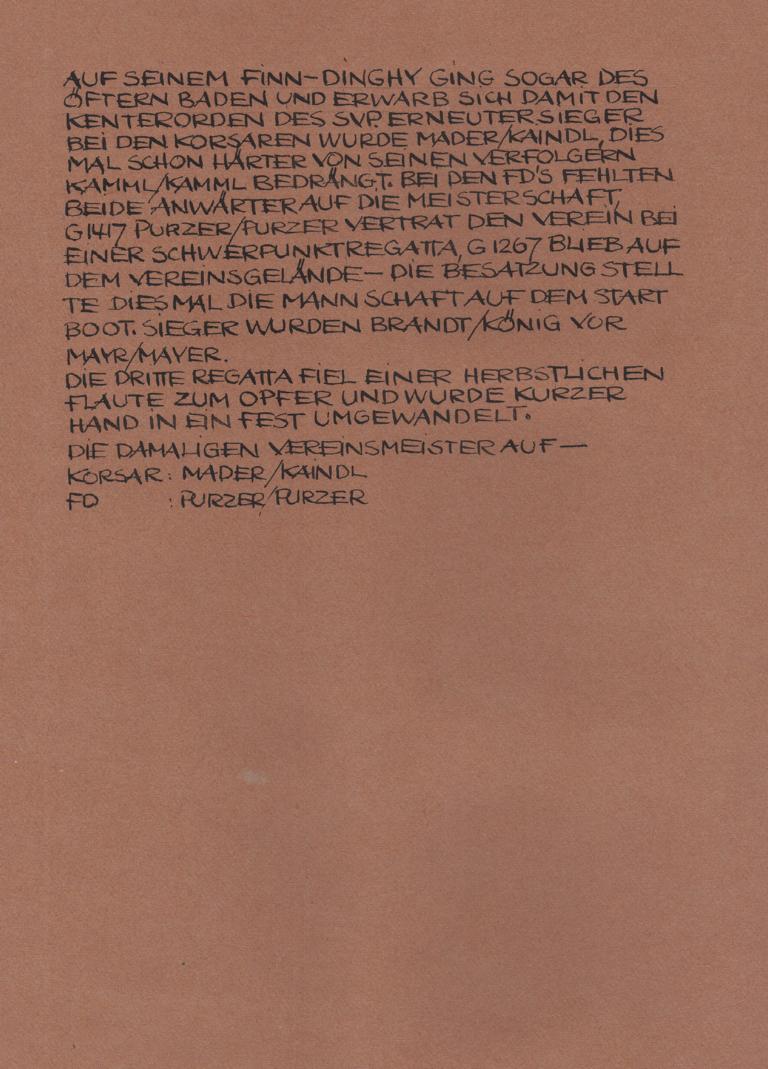 AUF SEINEM FINN-DINGHY GING SOGAR DES
ÖFTERN BADEN UND ERWARB SICH DAMIT DEN
KENTERORDEN DES SVP. ERNEUTER SIEGER
BEI DEN KORSAREN WURDE MADER/KAINDL, DIES
MAL SCHON HÄRTER VON SEINEN VERFOLGERN
KAMML/KAMML BEDRÄNGT. BEI DEN FD'S FEHLTEN
BEIDE ANWÄRTER AUF DIE MEISTERSCHAFT,
G 1417 PURZER/PURZER VERTRAT DEN VEREIN BEI
EINER SCHWERPUNKTREGATTA, G 1267 BLIEB AUF
DEM VEREINSGELÄNDE — DIE BESATZUNG STELL
TE DIESMAL DIE MANNSCHAFT AUF DEM START
BOOT. SIEGER WURDEN BRANDT/KÖNIG VOR
MAYR/MAYER.
DIE DRITTE REGATTA FIEL EINER HERBSTLICHEN
FLAUTE ZUM OPFER UND WURDE KURZER
HAND IN EIN FEST UMGEWANDELT.
DIE DAMALIGEN VEREINSMEISTER AUF —
KORSAR : MADER/KAINDL
FD : PURZER/PURZER